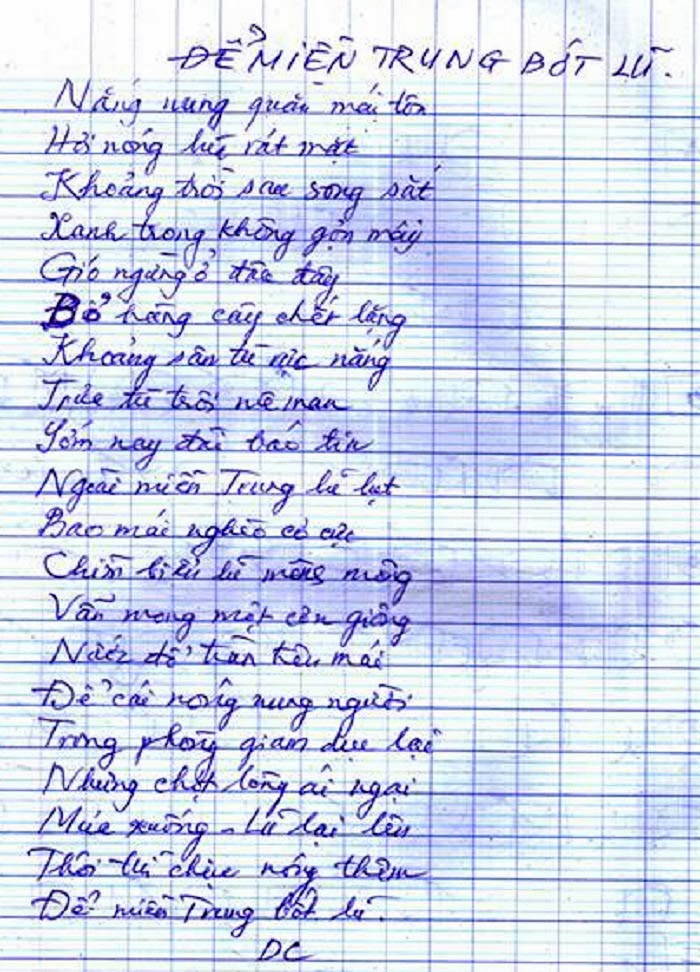 ĐỂ MIỀN TRUNG BỚT LŨ.
Nắng nung quắn mái tôn
Hơi nóng hừi rát mặt
Khoảng trời sau song sắt
Xanh trong không gợn mây
Gió ngừng ở đâu đây
Bỏ hàng cây chết lặng
Khoảng sân tù rực nắng
Trưa tù trôi nề man
Sớm nay đài báo tin
Ngoài miền Trung lũ lụt
Bao mái nghèo cơ cực
Chìm biển lũ mênh mông
Vẫn mong một cơn giông
Nước đổ tràn trên mái
Để cái nóng nung người
Trong phòng giam dịu lại
Nhưng chợt lòng ái ngại
Mưa xuống - Lũ lại lên
Thôi thì chịu nóng thêm
Để miền Trung bớt lũ.
DC